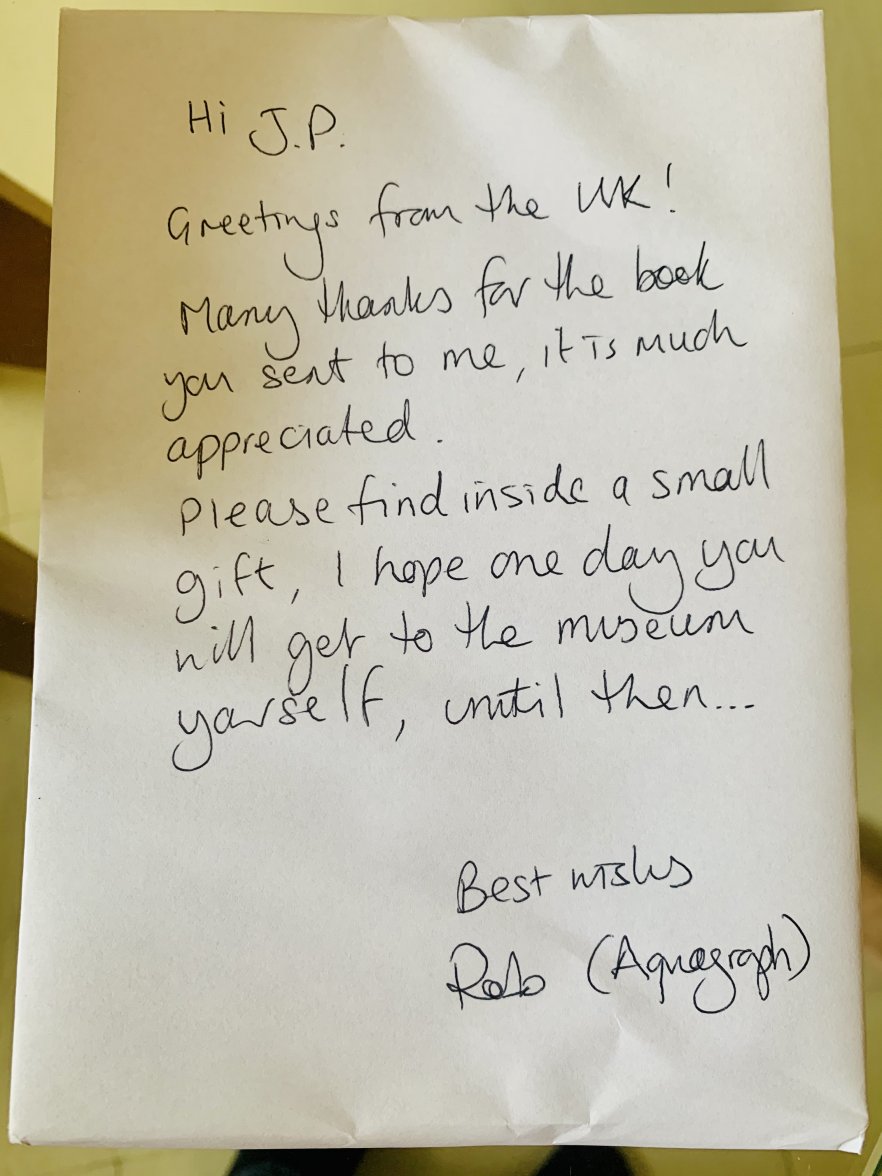 Hi J.P.
Greetings from the UK!
Many thanks for the book
you sent to me, it is much
appreciated.
Please find inside a small
gift, I hope one day you
will get to the museum
yourself, until then...
Best wishes
Rob (Aquagraph)